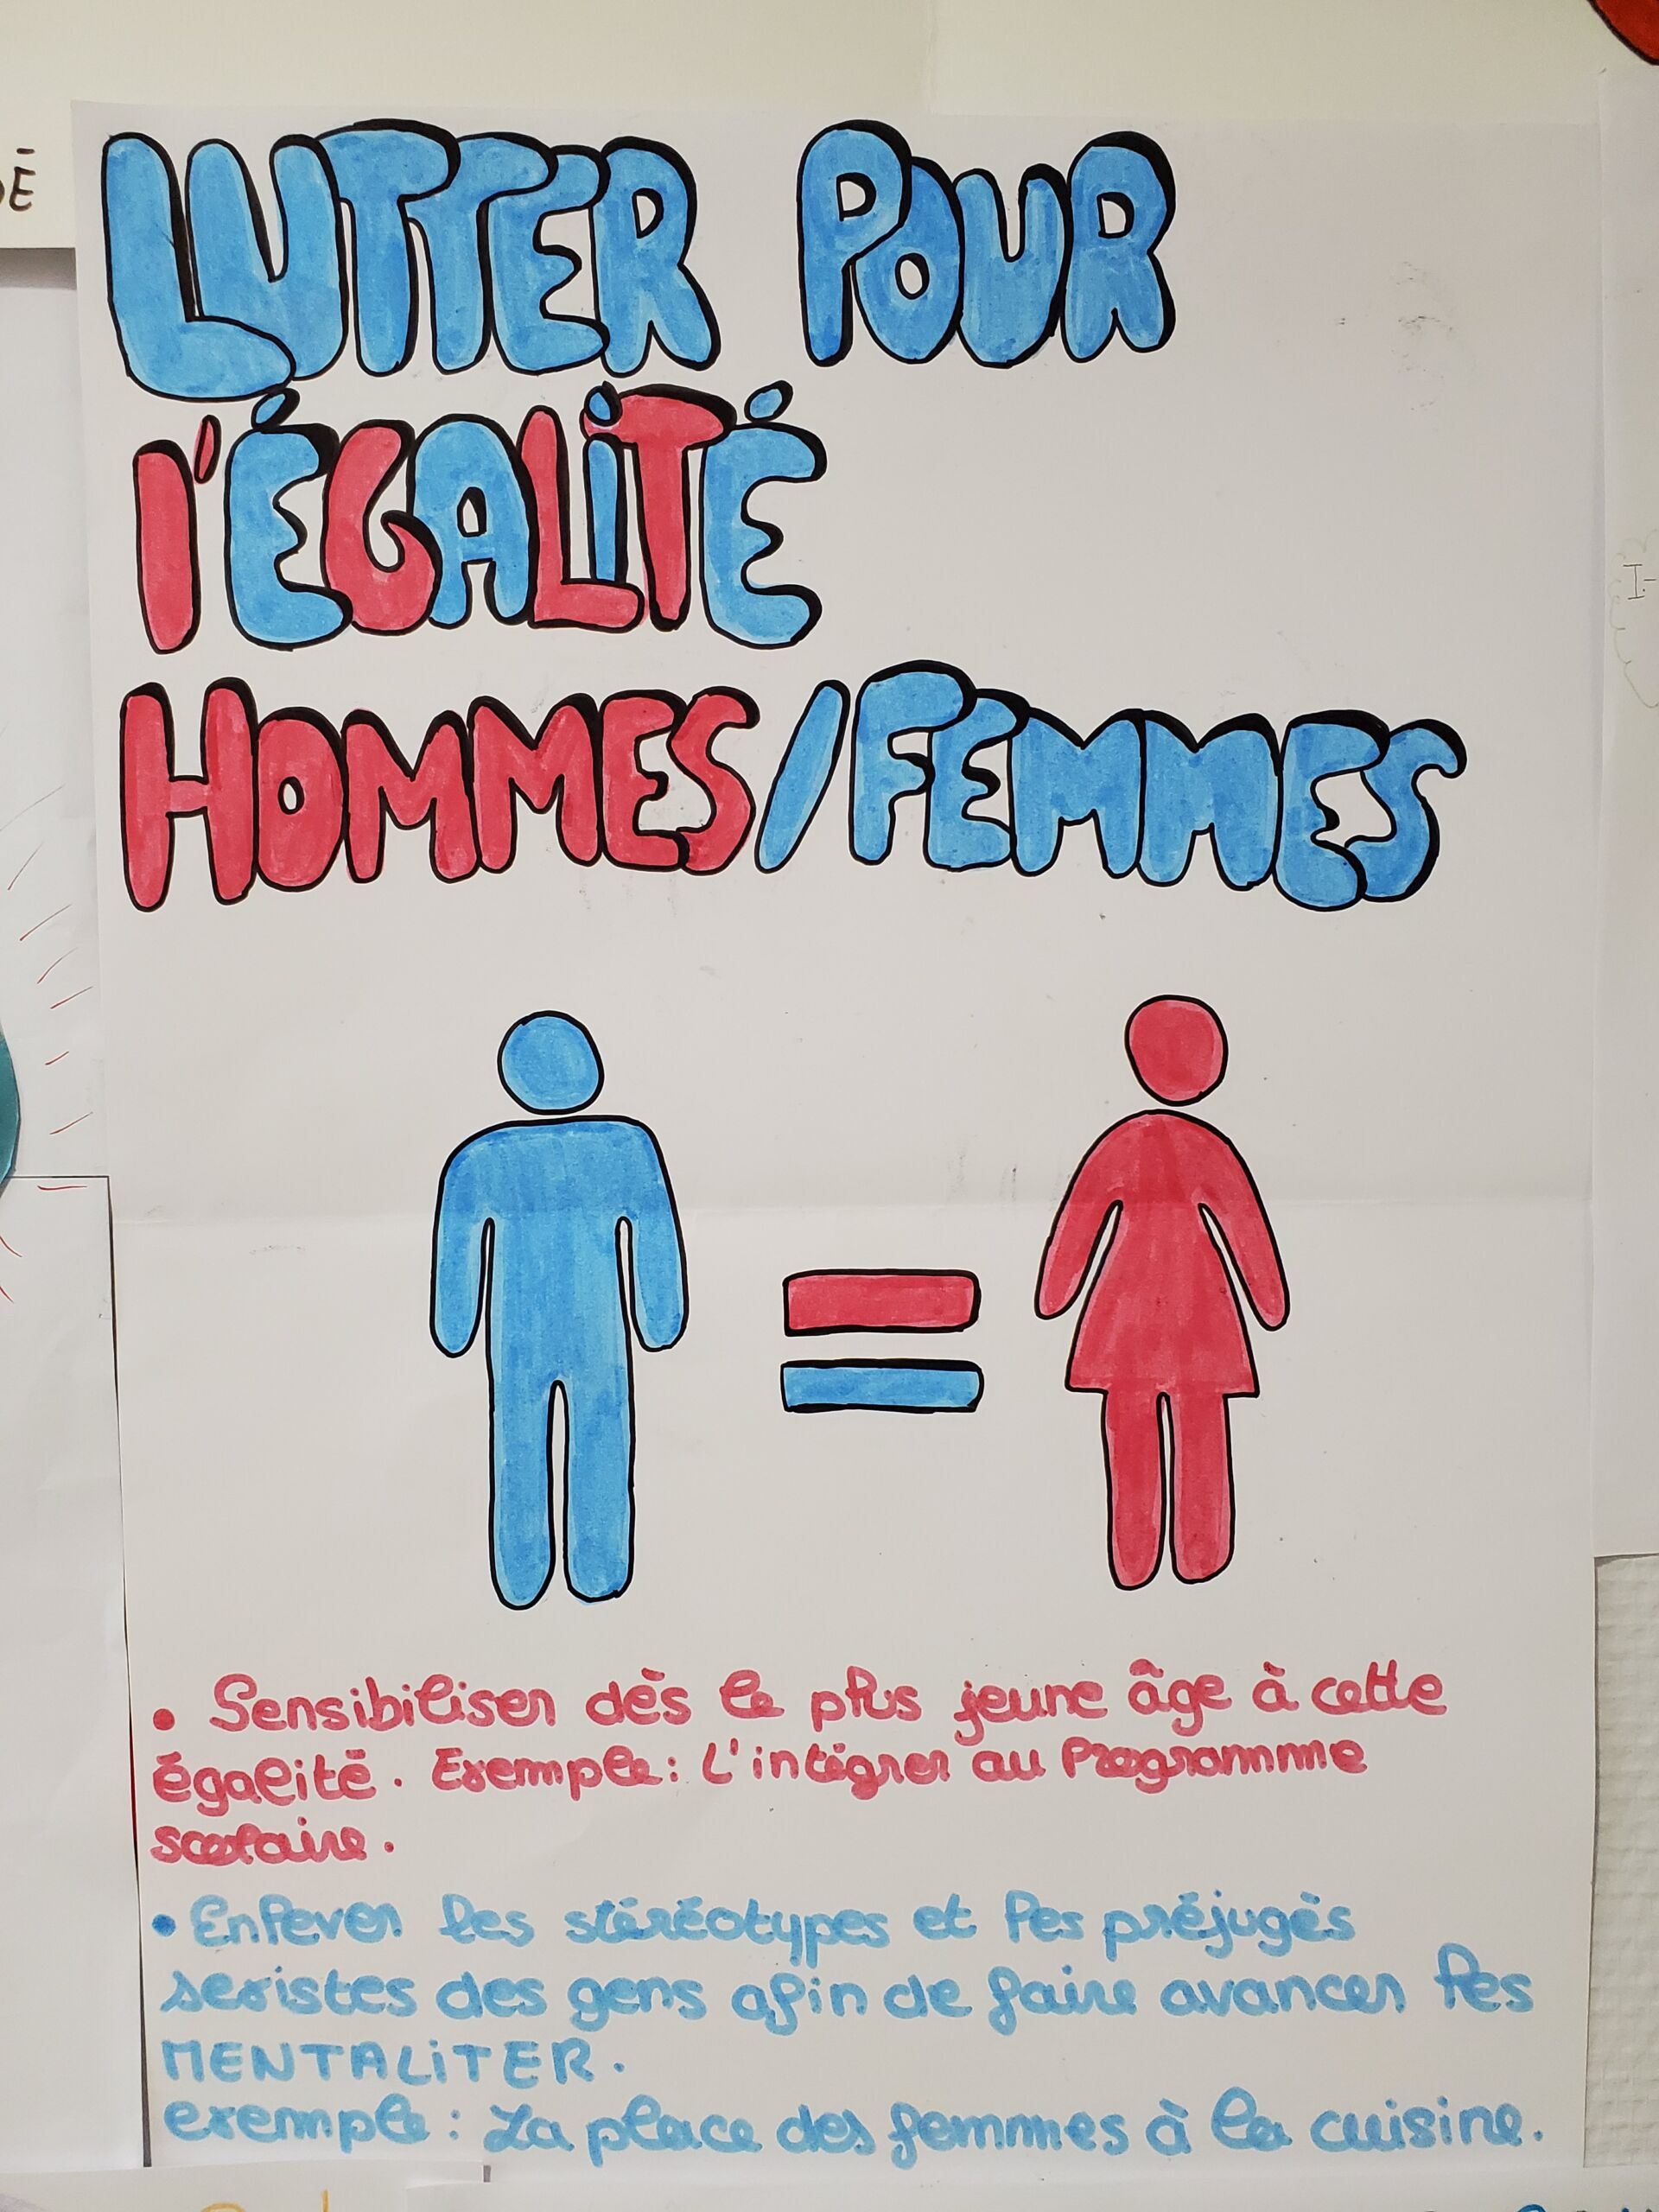 LUTTER POUR
l'ÉGALiTÉ
HOMMES/FEMMES
• Sensibiliser dès le plus jeune âge à cette
égalité. Exemple : L'intégrer au Programme
scolaire.
• Enlever les stéréotypes et les préjugés
sexistes des gens afin de faire avancer les
MENTALiTER.
exemple : La place des femmes à la cuisine.